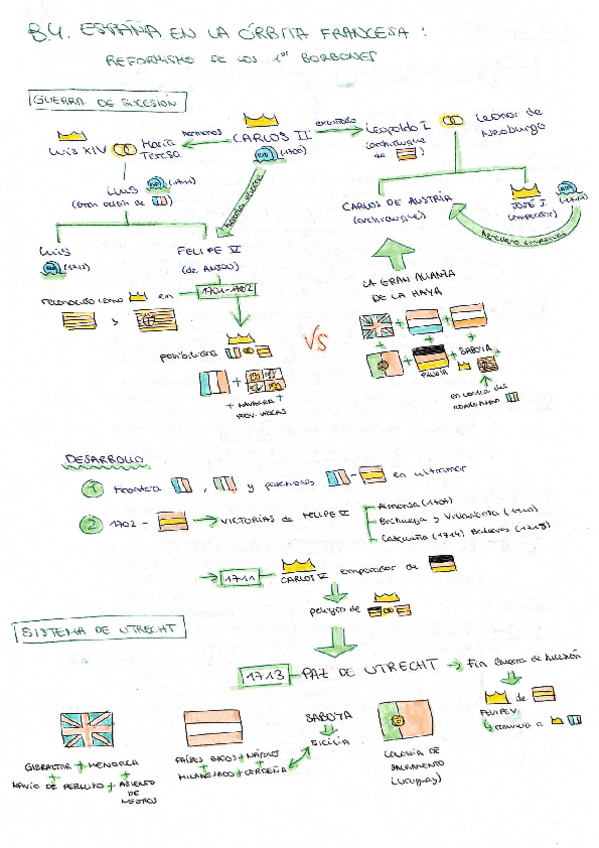 8.4. ESPAÑA EN LA ÓRBITA FRANCESA:
REFORMISMO DE LOS 1os BORBONES
GUERRA DE SUCESIÓN
Luis XIV
María Teresa
hermanos
CARLOS II
RIP (1700)
cuñado
Leopoldo I
(archiduque de
)
Leonor de Neoburgo
Luis
RIP
(Gran delfín de
)
CARLOS DE AUSTRIA
(archiduque)
JOSÉ I
(emperador)
RIP
heredero
Luis
RIP (1712)
FELIPE V
(de ANJOU)
reconocido como
en
1701-1702
y
posibilidad
+
+ NAVARRA +
PROV. VASCAS
VS
LA GRAN ALIANZA
DE LA HAYA
+
+
+
+
+
+ SABOYA
PRUSIA
en contra del
DESARROLLO
1
frontera
,
y posesiones
-
en ultramar
2
1702 -
VICTORIAS de FELIPE V
Almansa (1707)
Brihuega y Villaviciosa (1710)
Cataluña (1714) Baleares (1715)
1711
CARLOS VI
emperador de
peligro de
SISTEMA DE UTRECHT
1713
PAZ DE UTRECHT
Fin Guerra de Sucesión
FELIPE V
de
renuncia a
GIBRALTAR + MENORCA
+
+
NAVÍO DE PERMISO + ASIENTO
DE
NEGROS
PAÍSES BAJOS + NÁPOLES
+
+
MILANESADO + CERDEÑA
SABOYA
SICILIA
COLONIA DE
SACRAMENTO
(Uruguay)